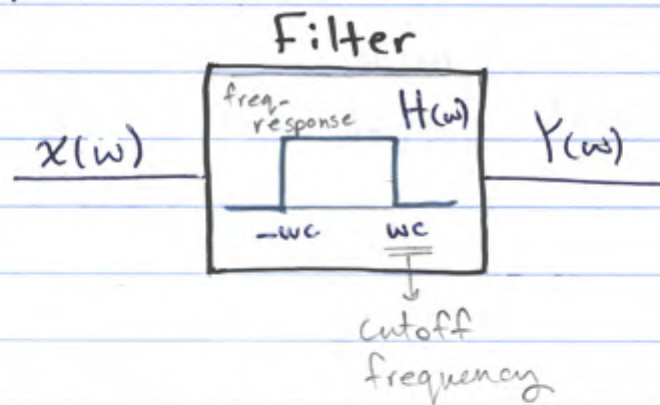 Filter
freq-
response
H(ω)
X(ω)
Y(ω)
-ωc
ωc
cutoff
frequency